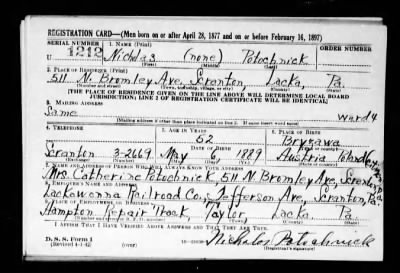 REGISTRATION CARD—(Men born on or after April 28, 1877 and on or before February 16, 1897)
SERIAL NUMBER 1. NAME (Print)
1212 Nicholas (none) Potochnick
(First) (Middle) (Last)
2. PLACE OF RESIDENCE (Print)
511 N. Bromley Ave, Scranton, Lacka, Pa.
(Number and street) (Town, township, village, or city) (County) (State)
[THE PLACE OF RESIDENCE GIVEN ON THE LINE ABOVE WILL DETERMINE LOCAL BOARD
JURISDICTION; LINE 2 OF REGISTRATION CERTIFICATE WILL BE IDENTICAL]
3. MAILING ADDRESS
Same ward 4
[Mailing address if other than place indicated on line 2. If same insert word same]
4. TELEPHONE 5. AGE IN YEARS 6. PLACE OF BIRTH
62
DATE OF BIRTH
Scranton 3-2669 May 6, 1889 Austria Poland
(Exchange) (Number) (Mo.) (Day) (Yr.) (State or country)
7. NAME AND ADDRESS OF PERSON WHO WILL ALWAYS KNOW YOUR ADDRESS
Mrs. Catherine Potochnick, 511 N. Bromley Ave, Scranton, Pa.
8. EMPLOYER'S NAME AND ADDRESS
Lackawanna Railroad Co., Jefferson Ave, Scranton, Pa.
9. PLACE OF EMPLOYMENT OR BUSINESS
Hampton Repair Track, Taylor, Lacka, Pa.
(Number and street or R. F. D. number) (Town) (County) (State)
I AFFIRM THAT I HAVE VERIFIED ABOVE ANSWERS AND THAT THEY ARE TRUE.
D. S. S. Form 1
(Revised 4-1-42) (over) Nicholas Potochnick